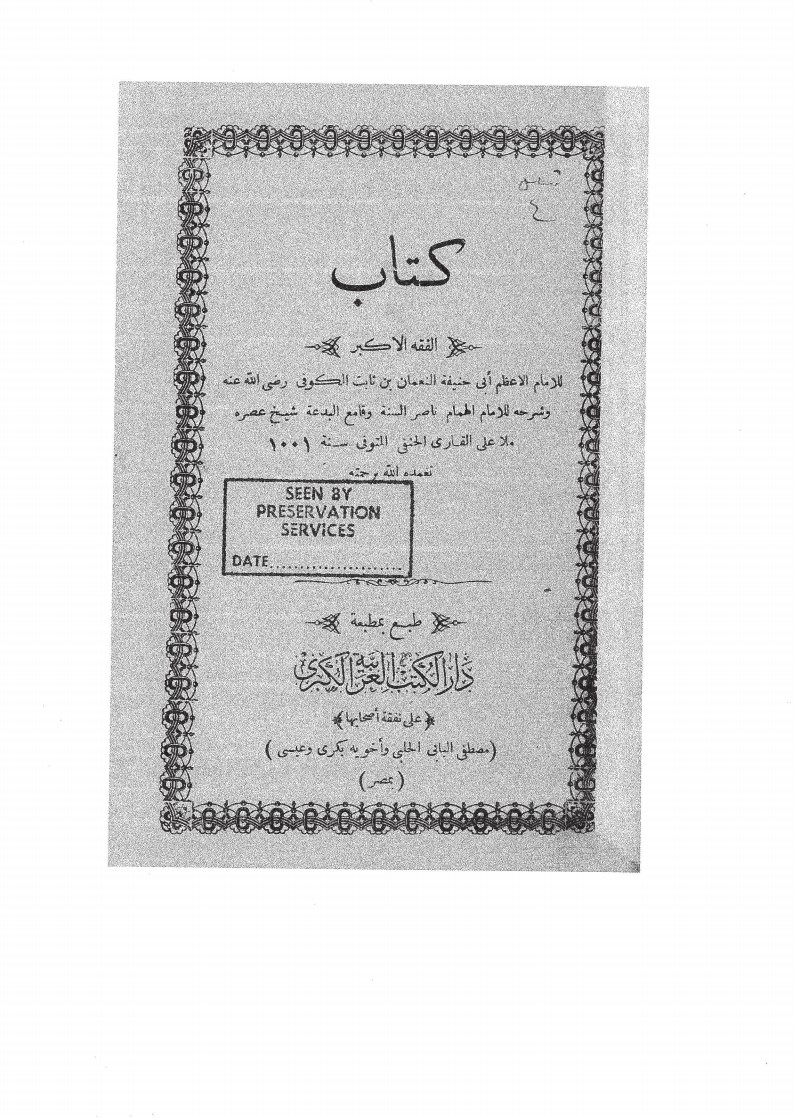 ٤
كتاب
الفقه الاكبر
للامام الاعظم أبى حنيفة النعمان بن ثابت الكوفى رضى الله عنه
وشرحه للامام الهمام ناصر السنة وقامع البدعة شيخ عصره
ملا على القارى الحنفى المتوفى سنة ١٠٠١
تغمده الله برحمته
SEEN BY
PRESERVATION
SERVICES
DATE......................
طبع بمطبعة
دَارُ الكُتُبِ العَرَبِيَّةِ الكُبْرَى
﴿على نفقة أصحابها﴾
(مصطفى البابى الحلبى وأخويه بكرى وعيسى)
(بمصر)